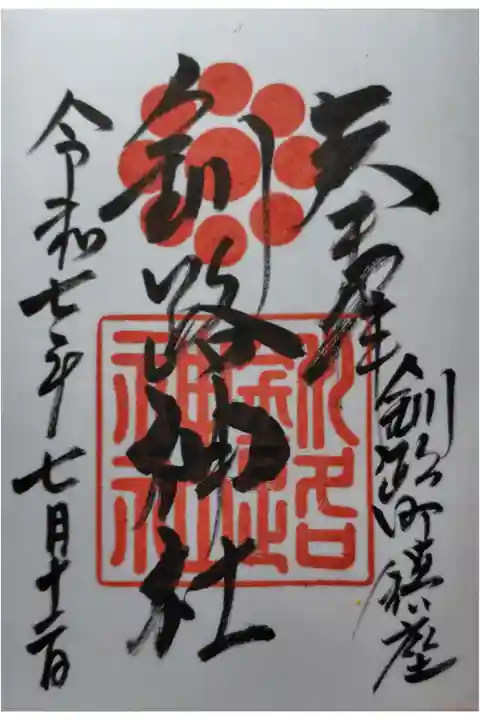 釧路町鎮座
釧路神社
令和七年七月十二日
釧路
神社